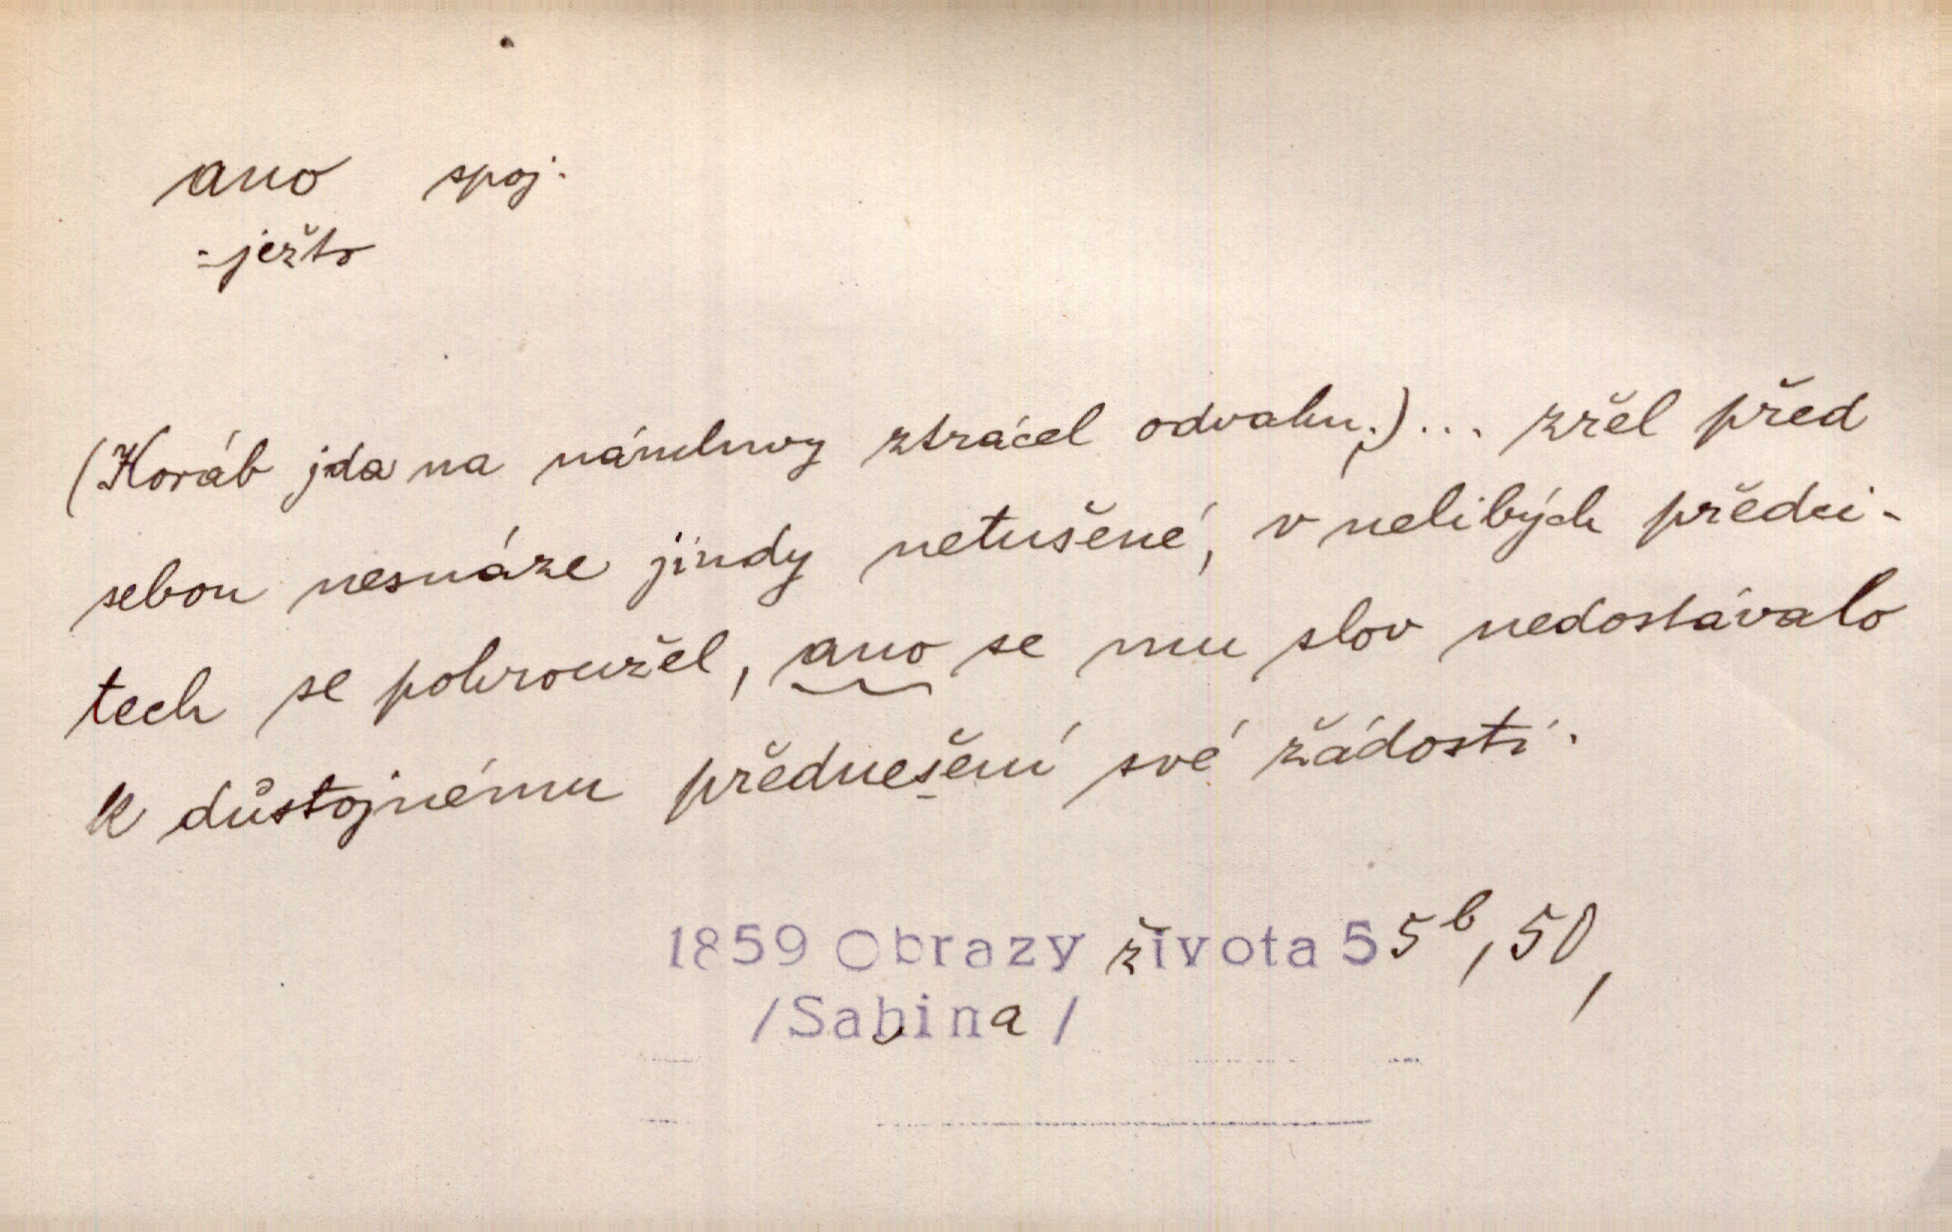 ano spoj.
= ježto
(Koráb jda na námluvy ztrácel odvahu.) ... zřel před
sebou nesnáze jindy netušené, v nelibých předci-
tech se pohroužel, ano se mu slov nedostávalo
k důstojnému přednešení své žádosti.
1859 Obrazy života 55b, 50,
/Sabina/